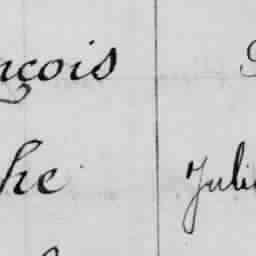 nçois
he Juli